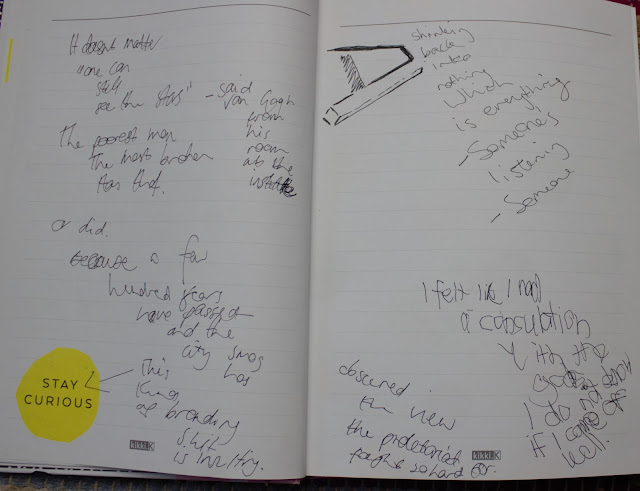 It doesnt matter
"one can
still
see the stars"
– said
van Gogh
from
his
room
at the
The poorest man
The most broken
Has that.
or did.
because a few
hundred years
have passed
and the
city smog
has
STAY
CURIOUS
This
kind
of branding
shit
is insulting.
shrinking
back
into
nothing
which
is everything
– Someone's
listening
– Someone
obscured
the view
the proletariat
fought so hard for.
I felt like I had
a consultation
with the
gods
I do not know
if I came off
well.